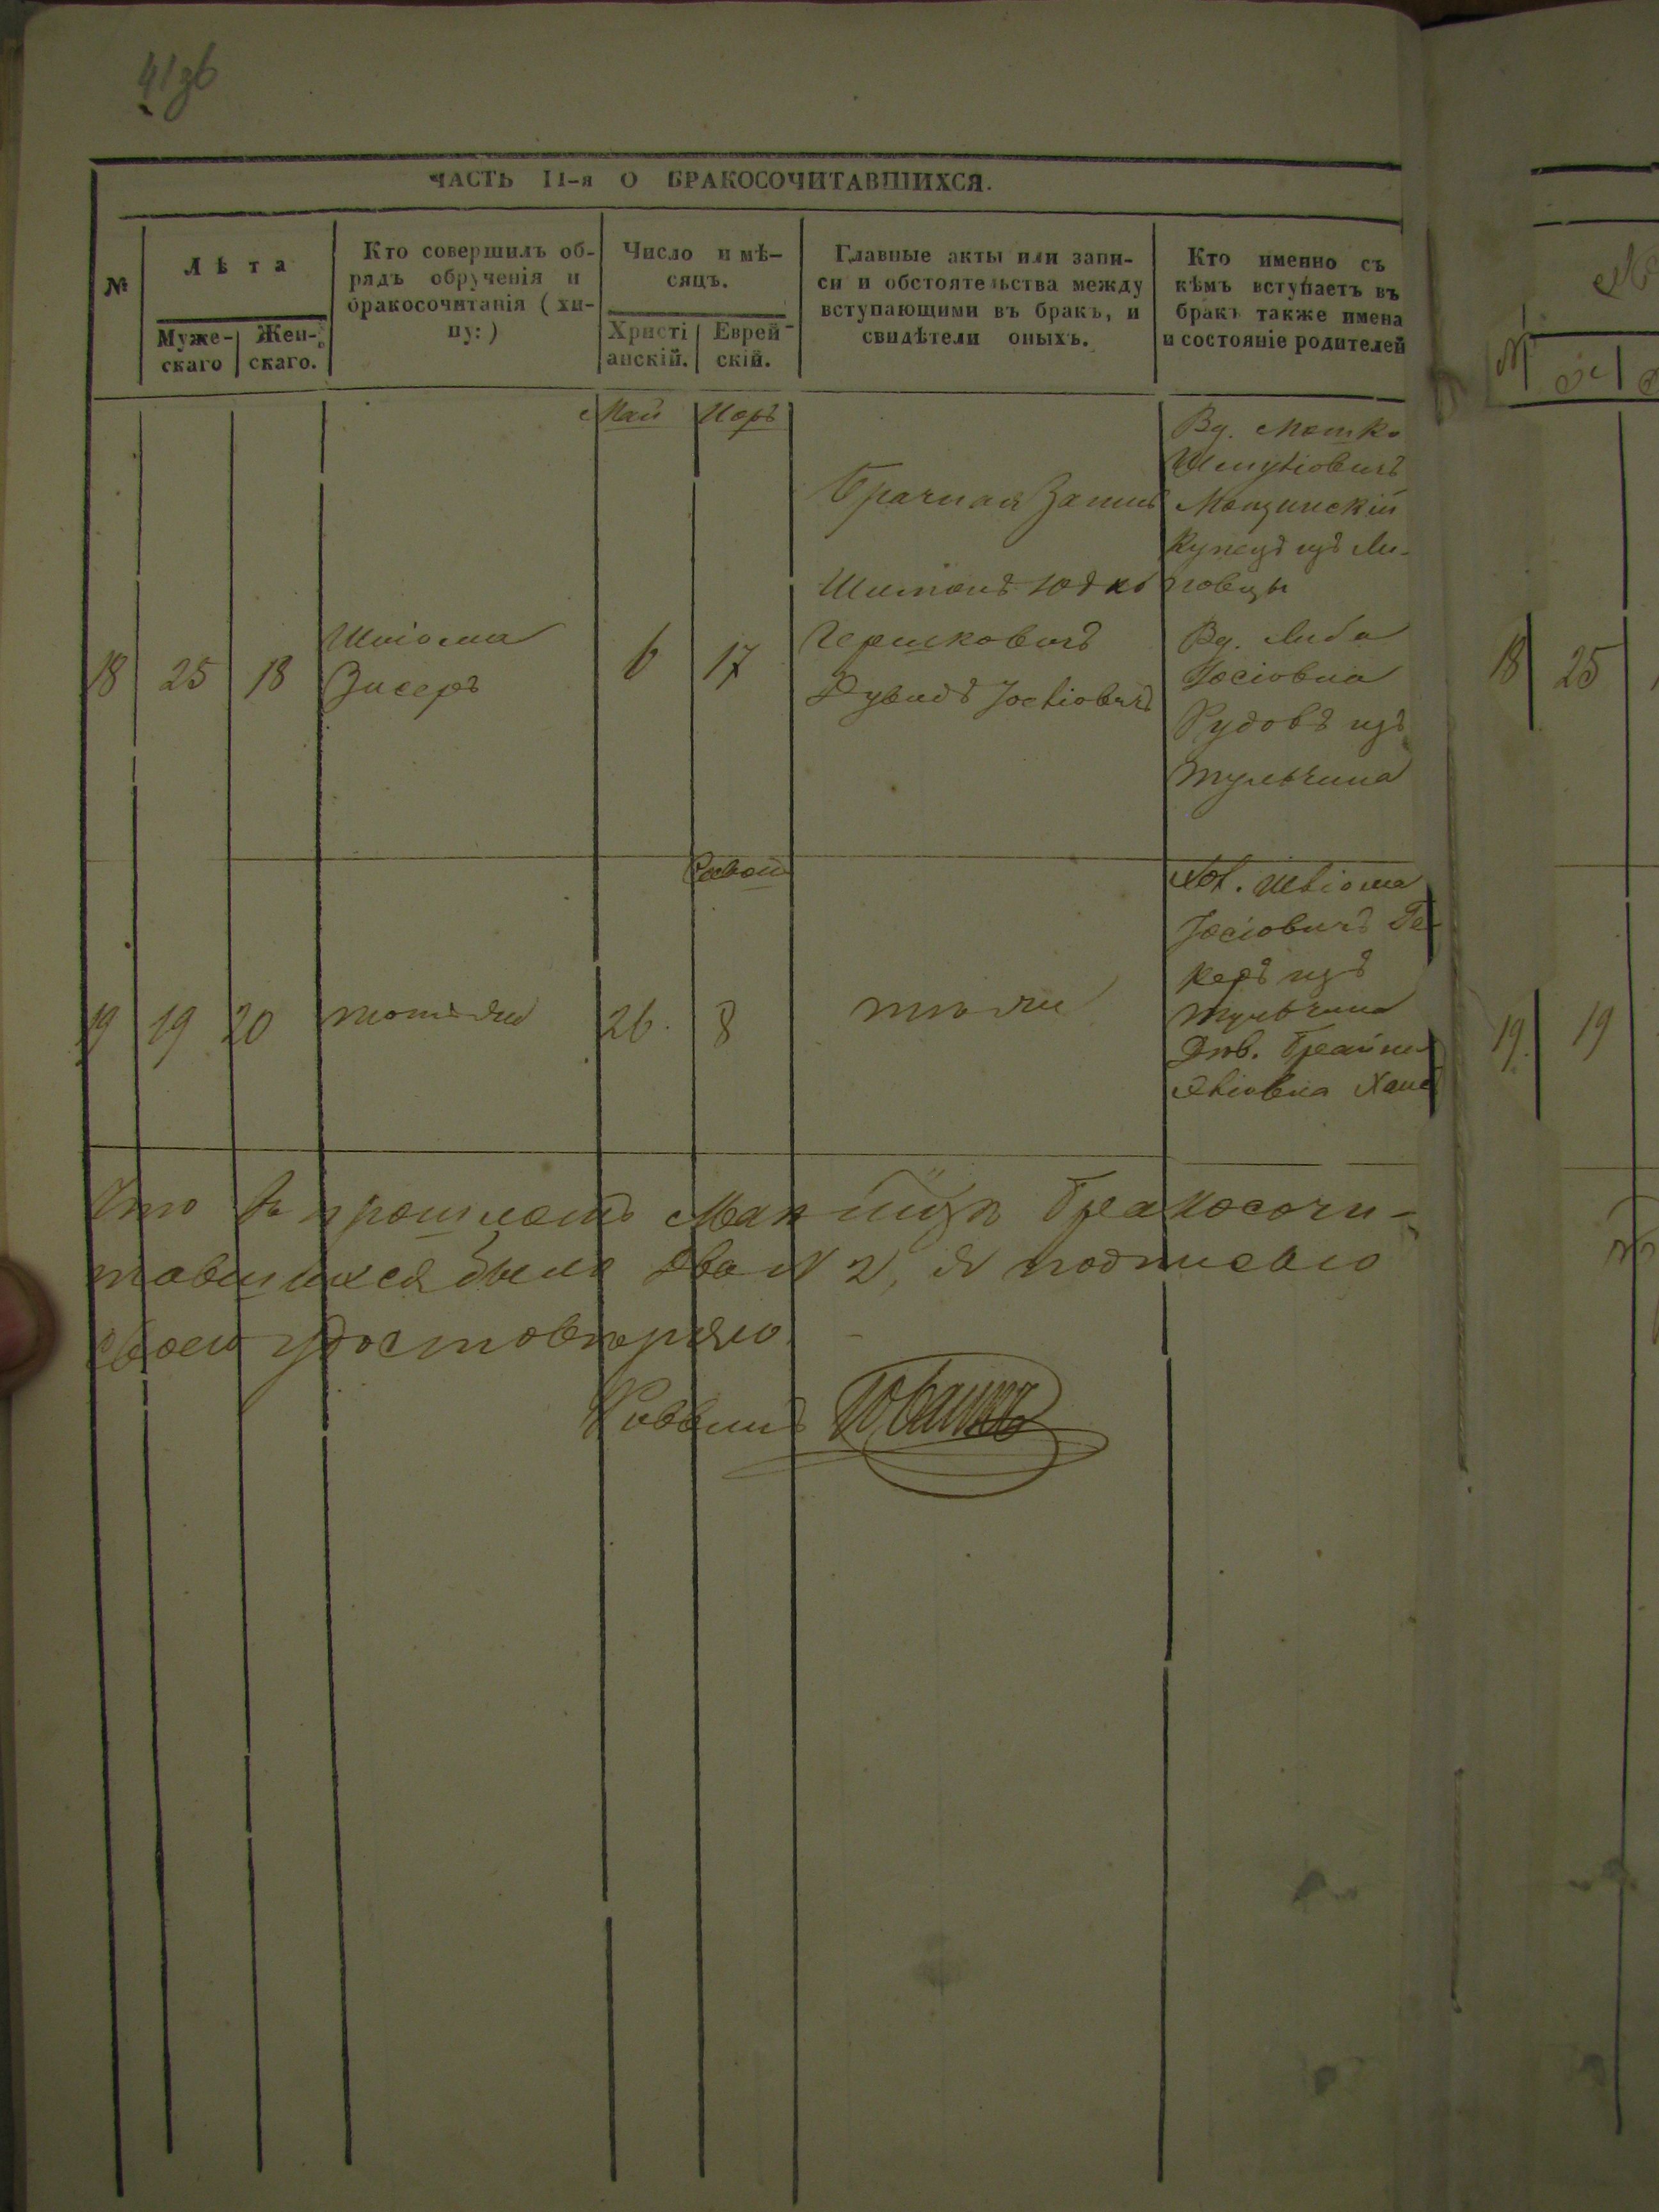 41
ЧАСТЬ II-я О БРАКОСОЧИТАВШИХСЯ.
№
Лѣта
Муже-
скаго
Жен-
скаго.
Кто совершилъ об-
рядъ обрученія и
бракосочитанія (хи-
пу:)
Число и мѣ-
сяцъ.
Христі
анскій.
Еврей-
скій.
Главные акты или запи-
си и обстоятельства между
вступающими въ бракъ, и
свидѣтели оныхъ.
Кто именно съ
кѣмъ вступаетъ въ
бракъ также имена
и состояніе родителей
Май
Иоръ
18
25
18
Шліома
Зисеръ
6
17
Брачная Запись
Шимонъ Юдко
Гершковичъ
Дувидъ
Вд. Мошко
купецъ изъ Ли-
повцы
Вд. Либа
Іосіовна
Рудовъ изъ
Тульчина
19
19
20
тотъ же
26.
8
тѣ же
Хол.
Іосіовичъ
керъ изъ
Тульчина
Дѣв.
Что въ прошломъ Маѣ мцѣ бракосочи-
тавшихся было два № 2, я подписью
своею удостовѣряю.
Раввинъ
18
25
19.
19